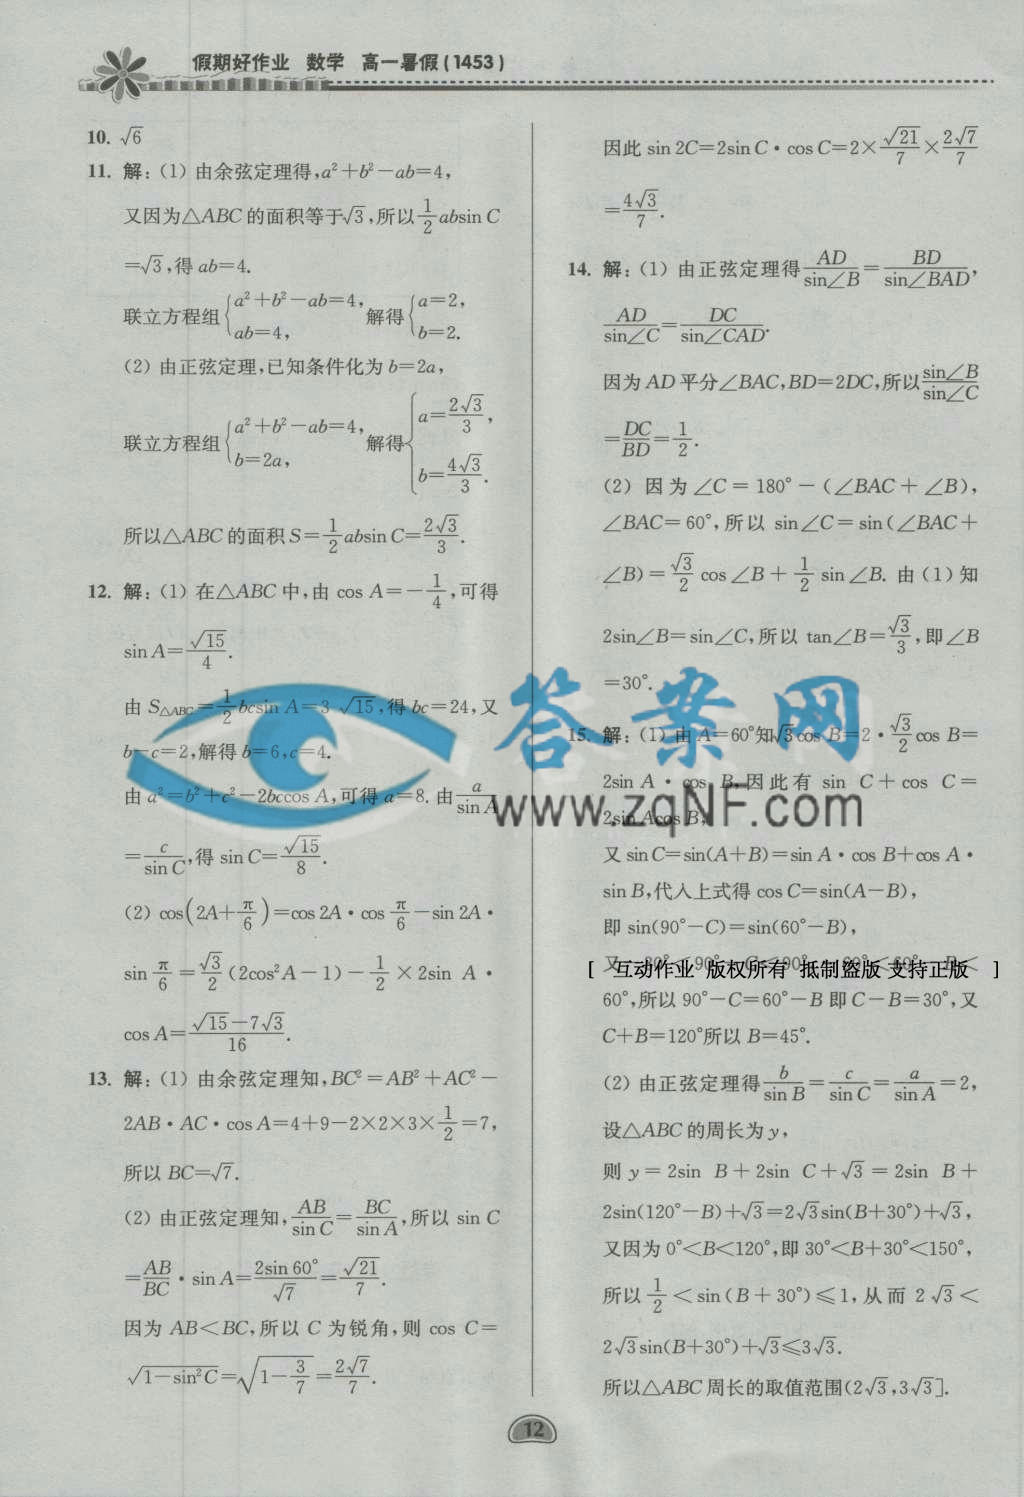 假期好作业 数学 高一暑假(1453)
10. √6
11. 解:(1) 由余弦定理得,a²+b²-ab=4,
又因为△ABC的面积等于√3,所以1/2 absin C
=√3,得 ab=4.
联立方程组{a²+b²-ab=4, ab=4, 解得{a=2, b=2.
(2) 由正弦定理,已知条件化为 b=2a,
联立方程组{a²+b²-ab=4, b=2a, 解得{a=2√3/3, b=4√3/3.
所以△ABC的面积 S=1/2 absin C=2√3/3.
12. 解:(1) 在△ABC中,由 cos A=-1/4,可得
sin A=√15/4.
由 S△ABC=1/2 bcsin A=3√15,得 bc=24,又
b-c=2,解得 b=6,c=4.
由 a²=b²+c²-2bccos A,可得 a=8. 由 a/sin A
=c/sin C,得 sin C=√15/8.
(2) cos(2A+π/6)=cos 2A·cos π/6-sin 2A·
sin π/6=√3/2(2cos²A-1)-1/2×2sin A·
cos A=(√15-7√3)/16.
13. 解:(1) 由余弦定理知,BC²=AB²+AC²-
2AB·AC·cos A=4+9-2×2×3×1/2=7,
所以 BC=√7.
(2) 由正弦定理知,AB/sin C=BC/sin A,所以 sin C
=AB/BC·sin A=2sin 60°/√7=√21/7.
因为 AB<BC,所以 C 为锐角,则 cos C=
√(1-sin²C)=√(1-3/7)=2√7/7.
因此 sin 2C=2sin C·cos C=2×√21/7×2√7/7
=4√3/7.
14. 解:(1) 由正弦定理得 AD/sin∠B=BD/sin∠BAD,
AD/sin∠C=DC/sin∠CAD.
因为 AD 平分∠BAC,BD=2DC,所以 sin∠B/sin∠C
=DC/BD=1/2.
(2) 因为∠C=180°-(∠BAC+∠B),
∠BAC=60°,所以 sin∠C=sin(∠BAC+
∠B)=√3/2 cos∠B+1/2 sin∠B. 由(1)知
2sin∠B=sin∠C,所以 tan∠B=√3/3,即∠B
=30°.
15. 解:(1) 由 A=60°知√3cos B=2·√3/2 cos B=
2sin A·cos B,因此有 sin C+cos C=
2sin Acos B,
又 sin C=sin(A+B)=sin A·cos B+cos A·
sin B,代入上式得 cos C=sin(A-B),
即 sin(90°-C)=sin(60°-B),
[ 互动作业 版权所有 抵制盗版 支持正版 ]
60°,所以 90°-C=60°-B 即 C-B=30°,又
C+B=120°所以 B=45°.
(2) 由正弦定理得 b/sin B=c/sin C=a/sin A=2,
设△ABC的周长为 y,
则 y=2sin B+2sin C+√3=2sin B+
2sin(120°-B)+√3=2√3sin(B+30°)+√3,
又因为 0°<B<120°,即 30°<B+30°<150°,
所以 1/2<sin(B+30°)≤1,从而 2√3<
2√3sin(B+30°)+√3≤3√3.
所以△ABC周长的取值范围(2√3,3√3].
答案网
www.zqNF.com
12